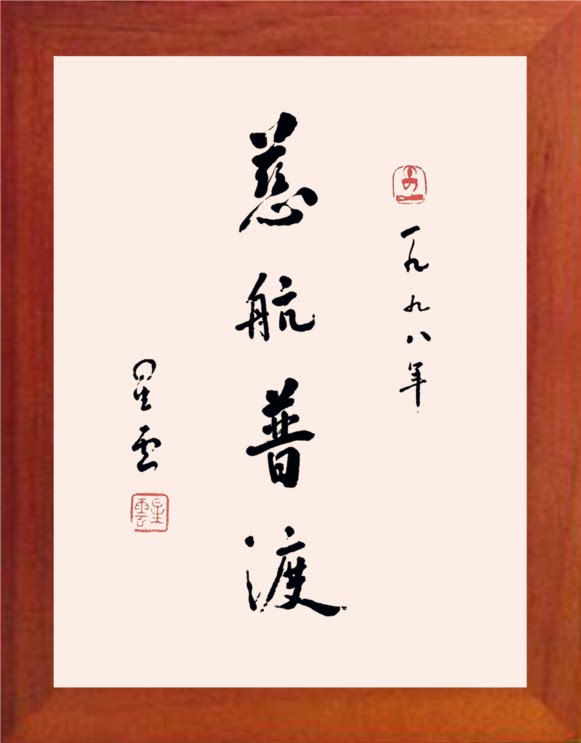 一九九八年
慈航普渡
星雲
星雲